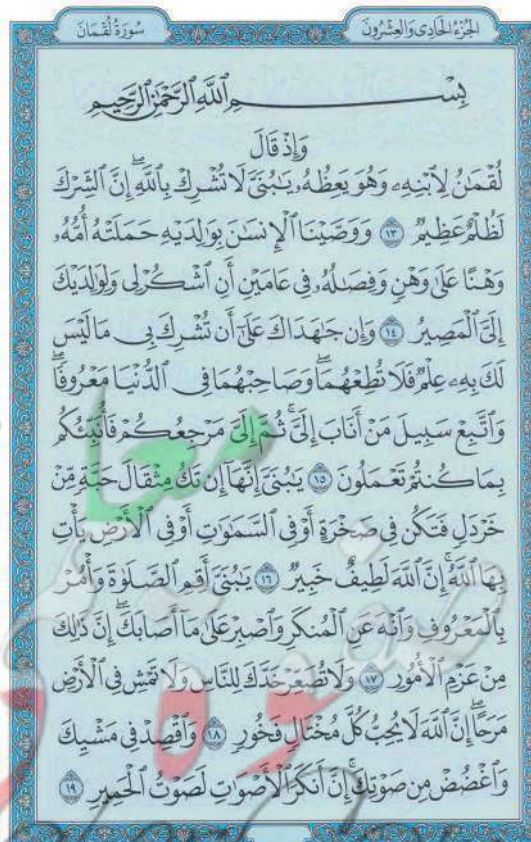 سُورَةُ لُقْمَانَ
الجُزْءُ الحَادِي وَالعِشْرُونَ
بِسْمِ ٱللَّهِ ٱلرَّحْمَٰنِ ٱلرَّحِيمِ
وَإِذْ قَالَ
لُقْمَٰنُ لِٱبْنِهِۦ وَهُوَ يَعِظُهُۥ يَٰبُنَىَّ لَا تُشْرِكْ بِٱللَّهِۖ إِنَّ ٱلشِّرْكَ
لَظُلْمٌ عَظِيمٌ ١٣ وَوَصَّيْنَا ٱلْإِنسَٰنَ بِوَٰلِدَيْهِ حَمَلَتْهُ أُمُّهُۥ
وَهْنًا عَلَىٰ وَهْنٍ وَفِصَٰلُهُۥ فِى عَامَيْنِ أَنِ ٱشْكُرْ لِى وَلِوَٰلِدَيْكَ
إِلَىَّ ٱلْمَصِيرُ ١٤ وَإِن جَٰهَدَاكَ عَلَىٰٓ أَن تُشْرِكَ بِى مَا لَيْسَ
لَكَ بِهِۦ عِلْمٌ فَلَا تُطِعْهُمَاۖ وَصَاحِبْهُمَا فِى ٱلدُّنْيَا مَعْرُوفًاۖ
وَٱتَّبِعْ سَبِيلَ مَنْ أَنَابَ إِلَىَّۚ ثُمَّ إِلَىَّ مَرْجِعُكُمْ فَأُنَبِّئُكُم
بِمَا كُنتُمْ تَعْمَلُونَ ١٥ يَٰبُنَىَّ إِنَّهَآ إِن تَكُ مِثْقَالَ حَبَّةٍ مِّنْ
خَرْدَلٍ فَتَكُن فِى صَخْرَةٍ أَوْ فِى ٱلسَّمَٰوَٰتِ أَوْ فِى ٱلْأَرْضِ يَأْتِ
بِهَا ٱللَّهُۚ إِنَّ ٱللَّهَ لَطِيفٌ خَبِيرٌ ١٦ يَٰبُنَىَّ أَقِمِ ٱلصَّلَوٰةَ وَأْمُرْ
بِٱلْمَعْرُوفِ وَٱنْهَ عَنِ ٱلْمُنكَرِ وَٱصْبِرْ عَلَىٰ مَآ أَصَابَكَۖ إِنَّ ذَٰلِكَ
مِنْ عَزْمِ ٱلْأُمُورِ ١٧ وَلَا تُصَعِّرْ خَدَّكَ لِلنَّاسِ وَلَا تَمْشِ فِى ٱلْأَرْضِ
مَرَحًاۖ إِنَّ ٱللَّهَ لَا يُحِبُّ كُلَّ مُخْتَالٍ فَخُورٍ ١٨ وَٱقْصِدْ فِى مَشْيِكَ
وَٱغْضُضْ مِن صَوْتِكَۚ إِنَّ أَنكَرَ ٱلْأَصْوَٰتِ لَصَوْتُ ٱلْحَمِيرِ ١٩
معا